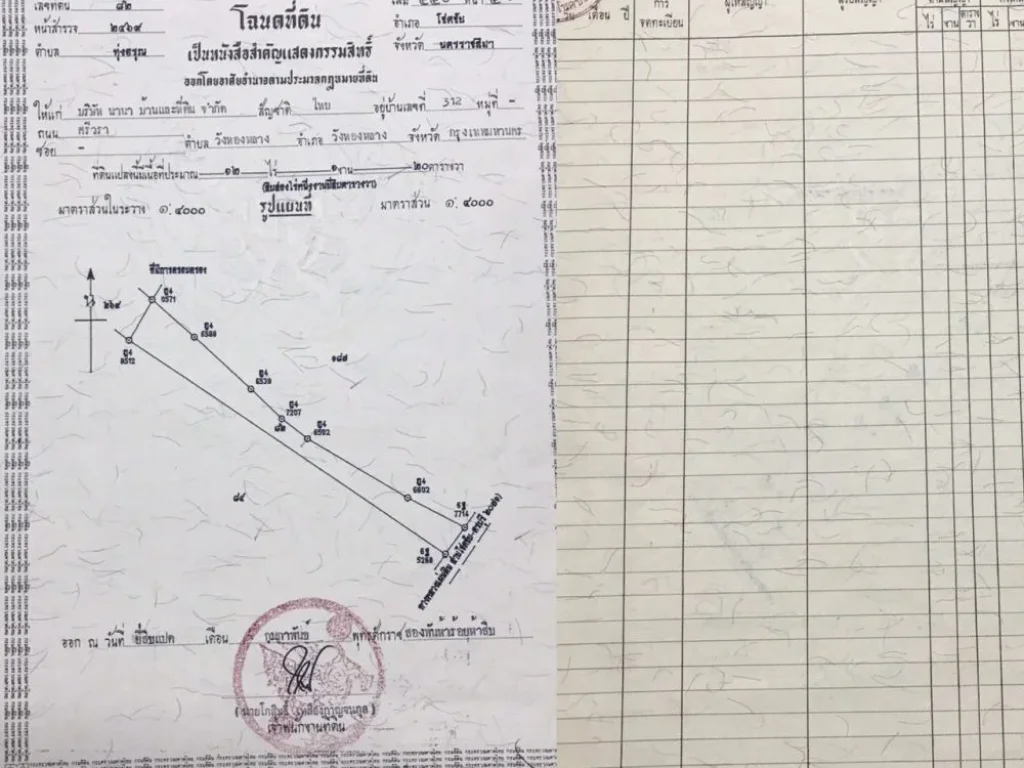 เลขที่ดิน ๘๒
หน้าสำรวจ ๒๔๖๙
ตำบล ทุ่งอรุณ
โฉนดที่ดิน
เป็นหนังสือสำคัญแสดงกรรมสิทธิ์
ออกโดยอาศัยอำนาจตามประมวลกฎหมายที่ดิน
อำเภอ โชคชัย
จังหวัด นครราชสีมา
ให้แก่ บริษัท นานา บ้านและที่ดิน จำกัด สัญชาติ ไทย อยู่บ้านเลขที่ 312 หมู่ที่ -
ถนน ศรีวรา
ซอย - ตำบล วังทองหลาง อำเภอ วังทองหลาง จังหวัด กรุงเทพมหานคร
ที่ดินแปลงนี้มีเนื้อที่ประมาณ ๑๒ ไร่ ๑ งาน ๒๐ ตารางวา
(สิบสองไร่หนึ่งงานยี่สิบตารางวา)
มาตราส่วนในระวาง ๑:๔๐๐๐ รูปแผนที่ มาตราส่วน ๑:๔๐๐๐
ที่มีการครอบครอง
๒๖๔
ญ4
0571
ญ4
8512
ญ4
ญ4
6520
ญ4
7207
๘๒
ญ4
6502
๑๘๗
๘๔
ญ4
6802
6ฐ
7714
6ฐ
5268
ออก ณ วันที่ ยี่สิบแปด เดือน กุมภาพันธ์ พุทธศักราช สองพันห้าร้อยห้าสิบ
เจ้าพนักงานที่ดิน
เดือน ปี
การ
จดทะเบียน
ผู้ให้สัญญา
ผู้รับสัญญา
ไร่ งาน ตาราง
วา ไร่